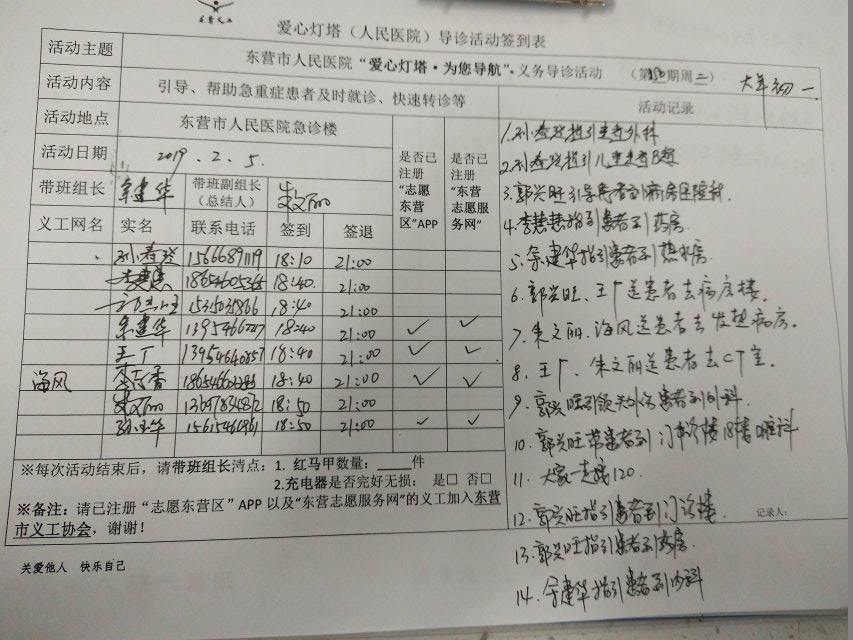 东营义工
爱心灯塔（人民医院）导诊活动签到表
活动主题 东营市人民医院“爱心灯塔·为您导航”·义务导诊活动 （第 期周二） 大年初一
活动内容 引导、帮助急重症患者及时就诊、快速转诊等 活动记录
活动地点 东营市人民医院急诊楼
活动日期 2019.2.5.
是否已注册“志愿东营区”APP
是否已注册“东营志愿服务网”
带班组长 余建华 带班副组长（总结人） 朱文丽
义工网名 实名 联系电话 签到 签退
孙春玲 15666891119 18:10 21:00
李慧慧 18:40. 21:00
18:40 21:00
余建华 18:40 21:00 ✓ ✓
王广 18:40 21:00 ✓ ✓
海风 18:40 21:00 ✓ ✓
朱文丽 18:50 21:00
18:50 21:00 ✓ ✓
※每次活动结束后，请带班组长清点：1. 红马甲数量：____件
2.充电器是否完好无损： 是□ 否□
※备注：请已注册“志愿东营区”APP 以及“东营志愿服务网”的义工加入东营
市义工协会，谢谢！
关爱他人 快乐自己
1.孙春玲指引患者外科
2.孙春玲指引儿童患者B超
3.郭兴旺引导患者到病房
4.李慧慧指引患者到药房
5.余建华指引患者到热水房
6.郭兴旺、王广送患者去病房楼.
7.朱文丽.海风送患者去发热病房.
8.王广、朱文丽送患者去CT室.
9.郭兴旺引领 患者到外科.
10.郭兴旺带患者到门诊楼
11.大家一起 120.
12.郭兴旺指引患者到门诊楼.
记录人：
13.郭兴旺指引患者到药房.
14.余建华指引患者到内科